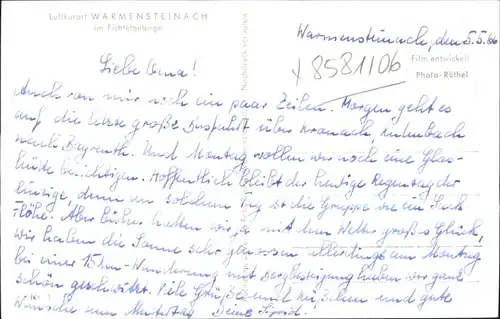 Luftkurort WARMENSTEINACH
im Fichtelgebirge
Warmensteinach, den 5.5.66
Film entwickelt
Photo-Röthel
x 8581106
Liebe Oma!
Auch von mir noch ein paar Zeilen. Morgen geht es
auf die letzte große Busfahrt über Kronach, Kulmbach
nach Bayreuth. Und Montag wollen wir noch eine Glas-
hütte besichtigen. Hoffentlich bleibt der heutige Regentag der
einzige, denn an solchem Tag ist die Gruppe wie ein Sack
Flöhe. Aber bisher hatten wir ja mit dem Wetter großes Glück,
wir haben die Sonne sehr genossen allerdings am Montag
bei einer 15 km-Wanderung mit Bergbesteigung haben wir ganz
schön geschwitzt. Viele Grüße und Küßchen und gute
Wünsche zum Muttertag Deine Sigrid.